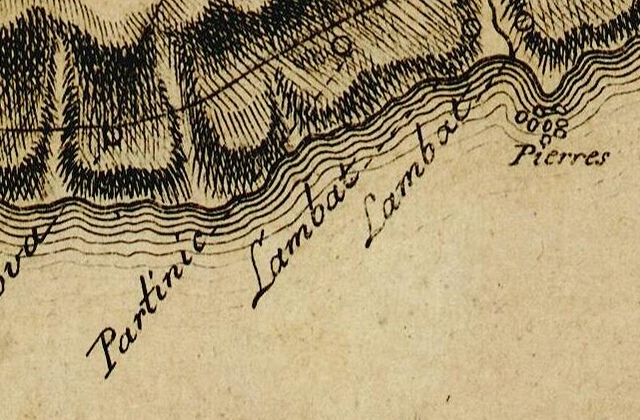 ova
Partinic
Lambat
Lambat
Pierres